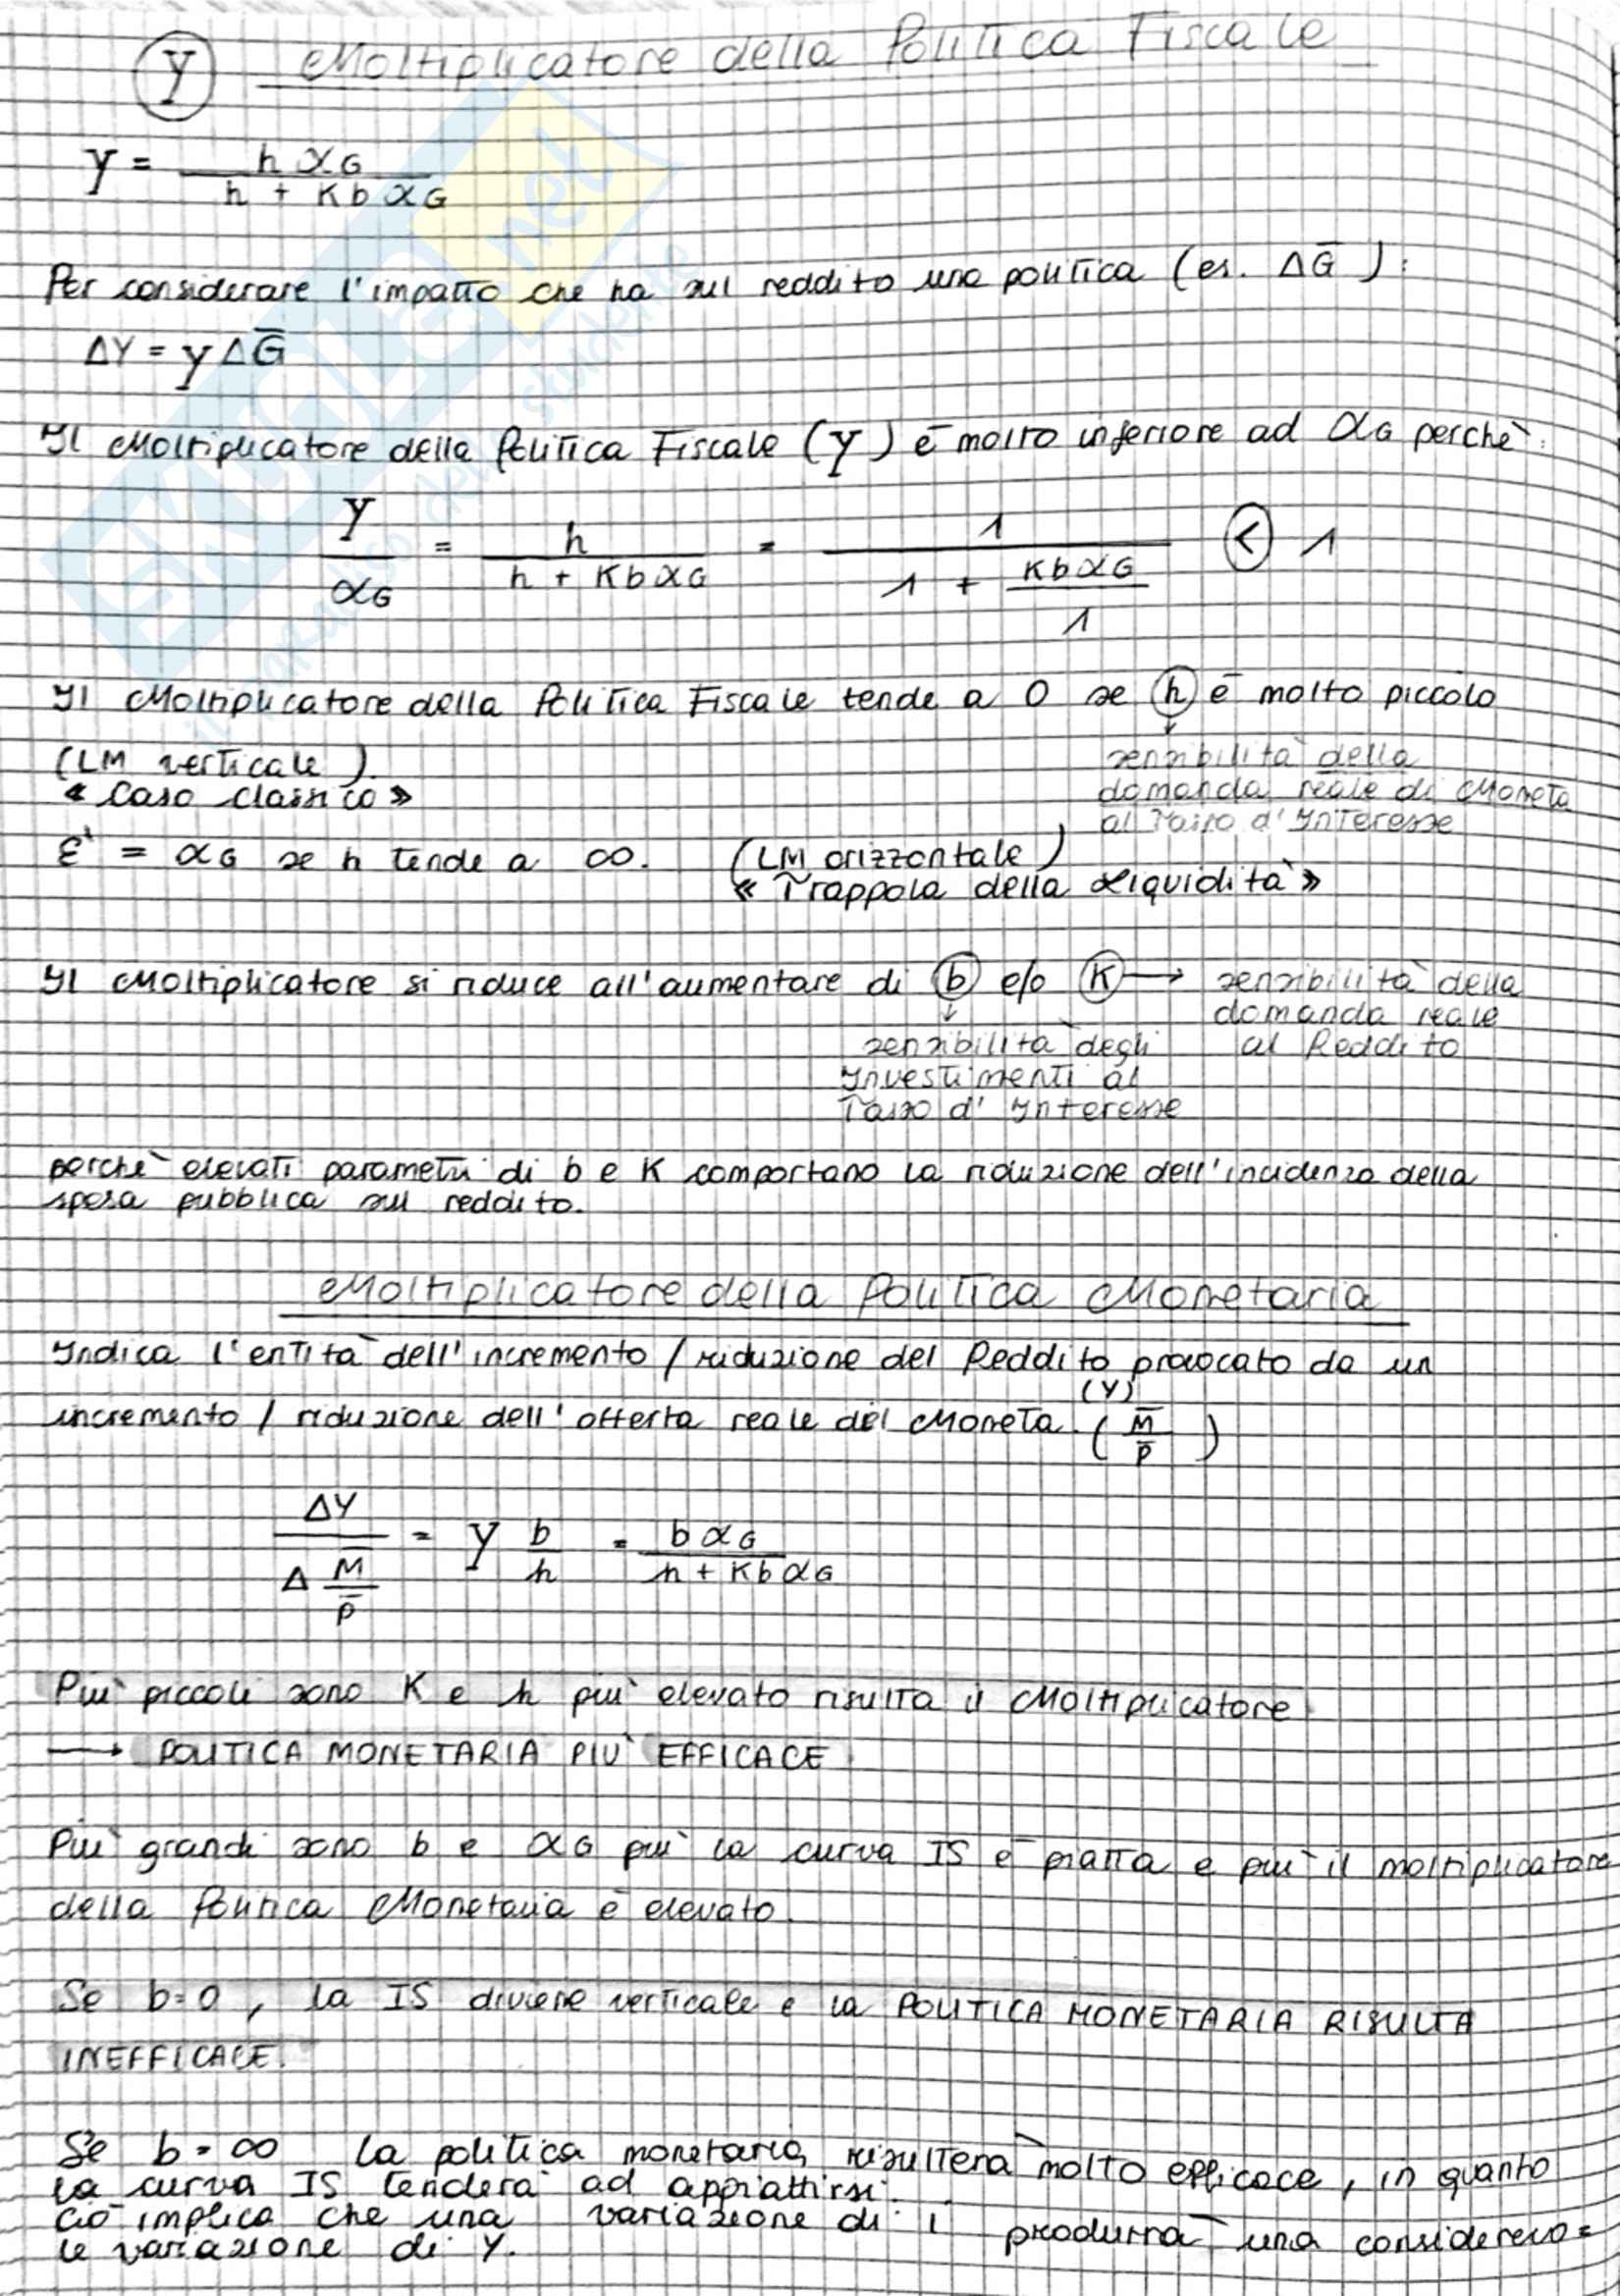 γ Moltiplicatore della Politica Fiscale
γ = h αG / h + K b αG
Per considerare l'impatto che ha sul reddito una politica (es. ΔG̅):
ΔY = γ ΔG̅
Il Moltiplicatore della Politica Fiscale (γ) è molto inferiore ad αG perchè:
γ / αG = h / h + K b αG = 1 / 1 + K b αG / 1 < 1
Il Moltiplicatore della Politica Fiscale tende a 0 se h è molto piccolo
(LM verticale).
« Caso classico »
sensibilità della
domanda reale di Moneta
al Tasso d'Interesse
E' = αG se h tende a ∞. (LM orizzontale)
« Trappola della Liquidità »
Il Moltiplicatore si riduce all'aumentare di b e/o K → sensibilità della
domanda reale
al Reddito
sensibilità degli
Investimenti al
Tasso d'Interesse
perchè elevati parametri di b e K comportano la riduzione dell'incidenza della
spesa pubblica sul reddito.
Moltiplicatore della Politica Monetaria
Indica l'entità dell'incremento / riduzione del Reddito provocato da un
(Y)
incremento / riduzione dell'offerta reale del Moneta. (M̅ / P̅)
ΔY / Δ M̅ / P̅ = γ b / h = b αG / h + K b αG
Più piccoli sono K e h più elevato risulta il Moltiplicatore
→ POLITICA MONETARIA PIÙ EFFICACE
Più grandi sono b e αG più la curva IS è piatta e più il moltiplicatore
della Politica Monetaria è elevato.
Se b=0, la IS diviene verticale e la POLITICA MONETARIA RISULTA
INEFFICACE.
Se b=∞ la politica monetaria risulterà molto efficace, in quanto
la curva IS tenderà ad appiattirsi.
Ciò implica che una variazione di i produrrà una considerevo=
le variazione di Y.
SKUOLA.net
il paradiso dello studente